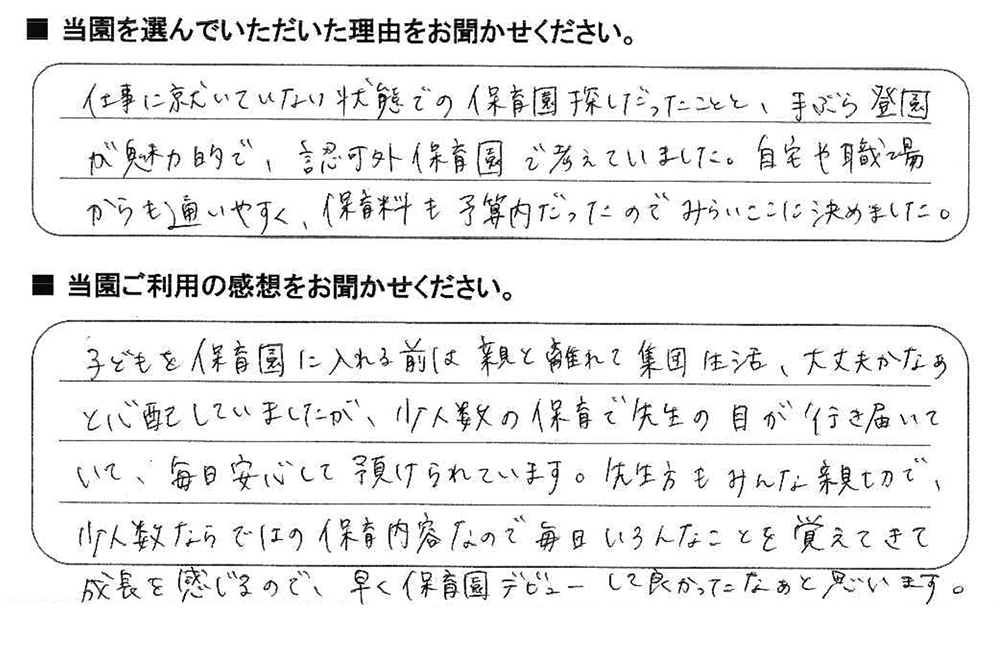 ■ 当園を選んでいただいた理由をお聞かせください。
仕事に就いていない状態での保育園探しだったことと、手ぶら登園
が魅力的で、認可外保育園で考えていました。自宅や職場
からも通いやすく、保育料も予算内だったのでみらいここに決めました。
■ 当園ご利用の感想をお聞かせください。
子どもを保育園に入れる前は親と離れて集団生活、大丈夫かなぁ
と心配していましたが、少人数の保育で先生の目が行き届いて
いて、毎日安心して預けられています。先生方もみんな親切で、
少人数ならではの保育内容なので毎日いろんなことを覚えてきて
成長を感じるので、早く保育園デビューして良かったなぁと思います。